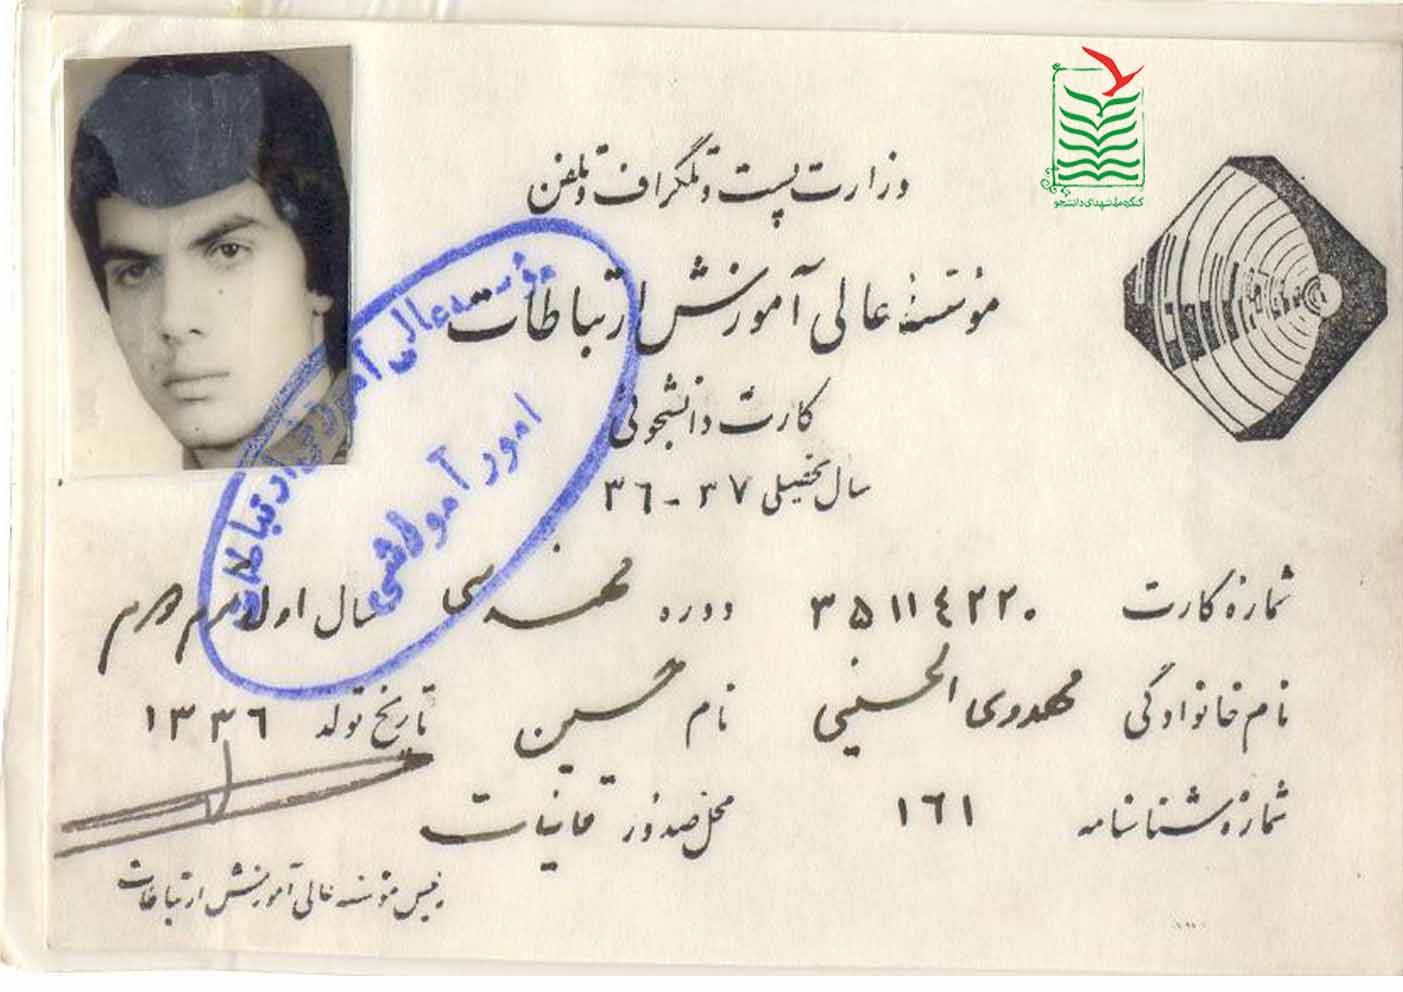 کنگره ملی شهدای دانشجو
وزارت پست و تلگراف و تلفن
مؤسسهٔ عالی آموزش ارتباطات
کارت دانشجوئی
سال تحصیلی ۳۷-۳۶
شمارهٔ کارت ۳۵۱۱۴۲۲۰ دوره مهندسی سال اول
نام خانوادگی مهدوی الحسینی نام حسین تاریخ تولد ۱۳۳۶
شمارهٔ شناسنامه ۱۶۱ محل صدور قائنات
رئیس مؤسسه عالی آموزش ارتباطات
مؤسسه عالی آموزش ارتباطات
امور آموزشی